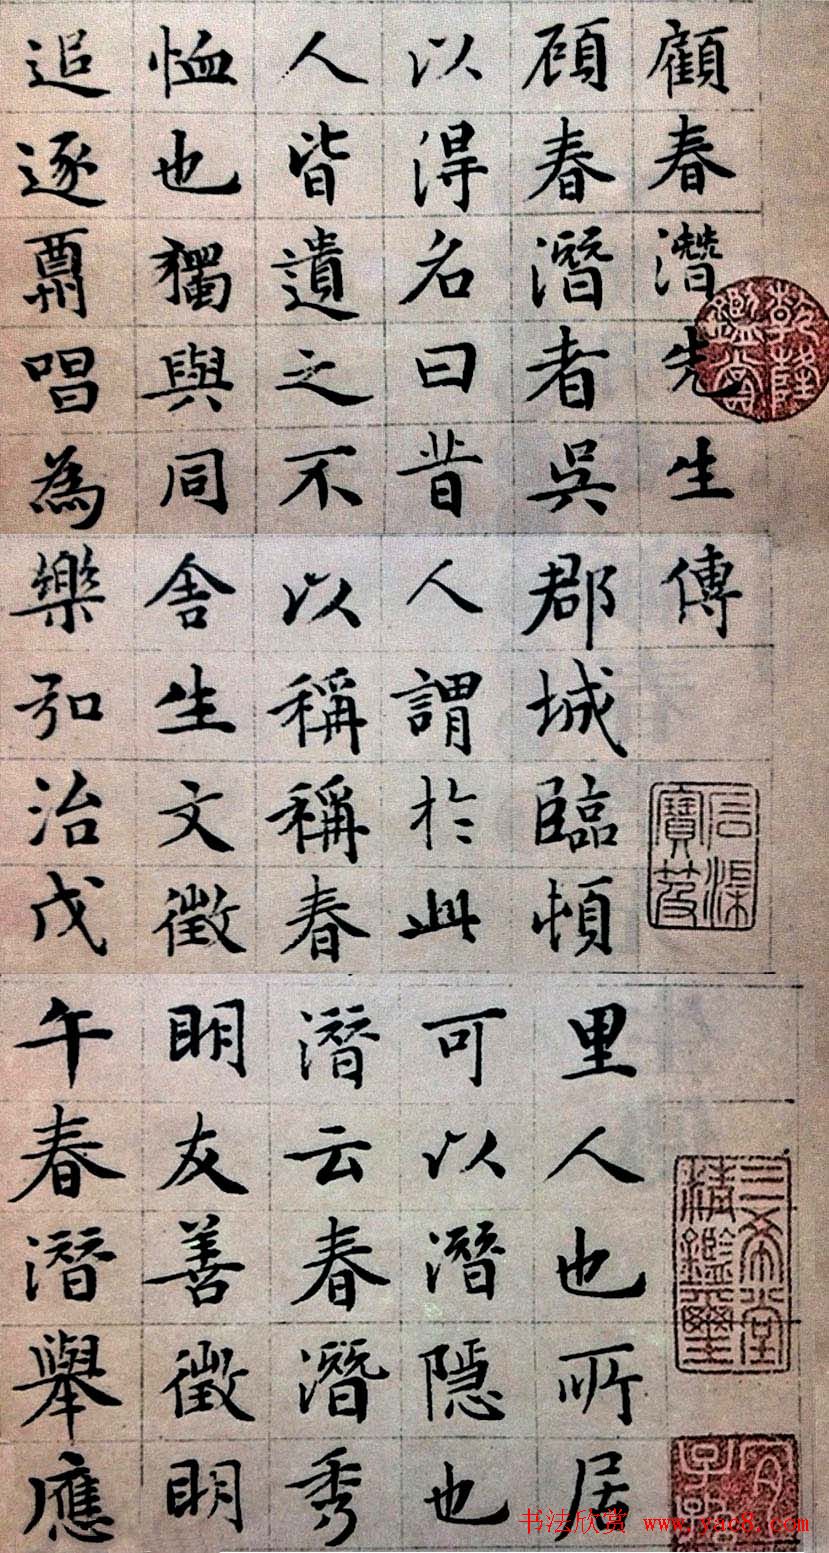 顧春潛先生傳
頋春潛者吳郡城臨頓里人也所居
以得名曰昔人謂於此可以潛隱也
人皆遺之不以稱稱春潛云春潛秀
恤也獨與同舍生文徵明友善徵明
追逐酬唱為樂弘治戊午春潛舉應
乾隆鑑賞
石渠寶笈
三希堂精鑑璽
宜子孫
书法欣赏 www.yac8.com